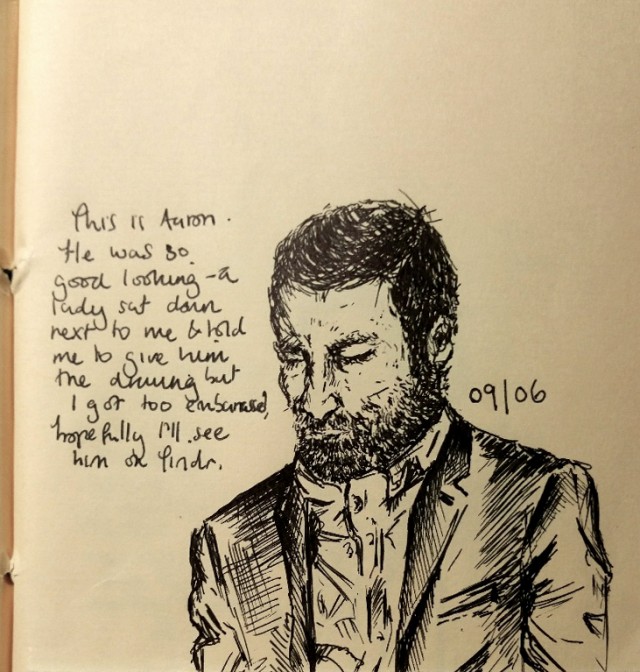 This is Aaron.
He was so
good looking - a
lady sat down
next to me & told
me to give him
the drawing but
I got too embarassed,
hopefully I'll see
him on Tindr.
09/06